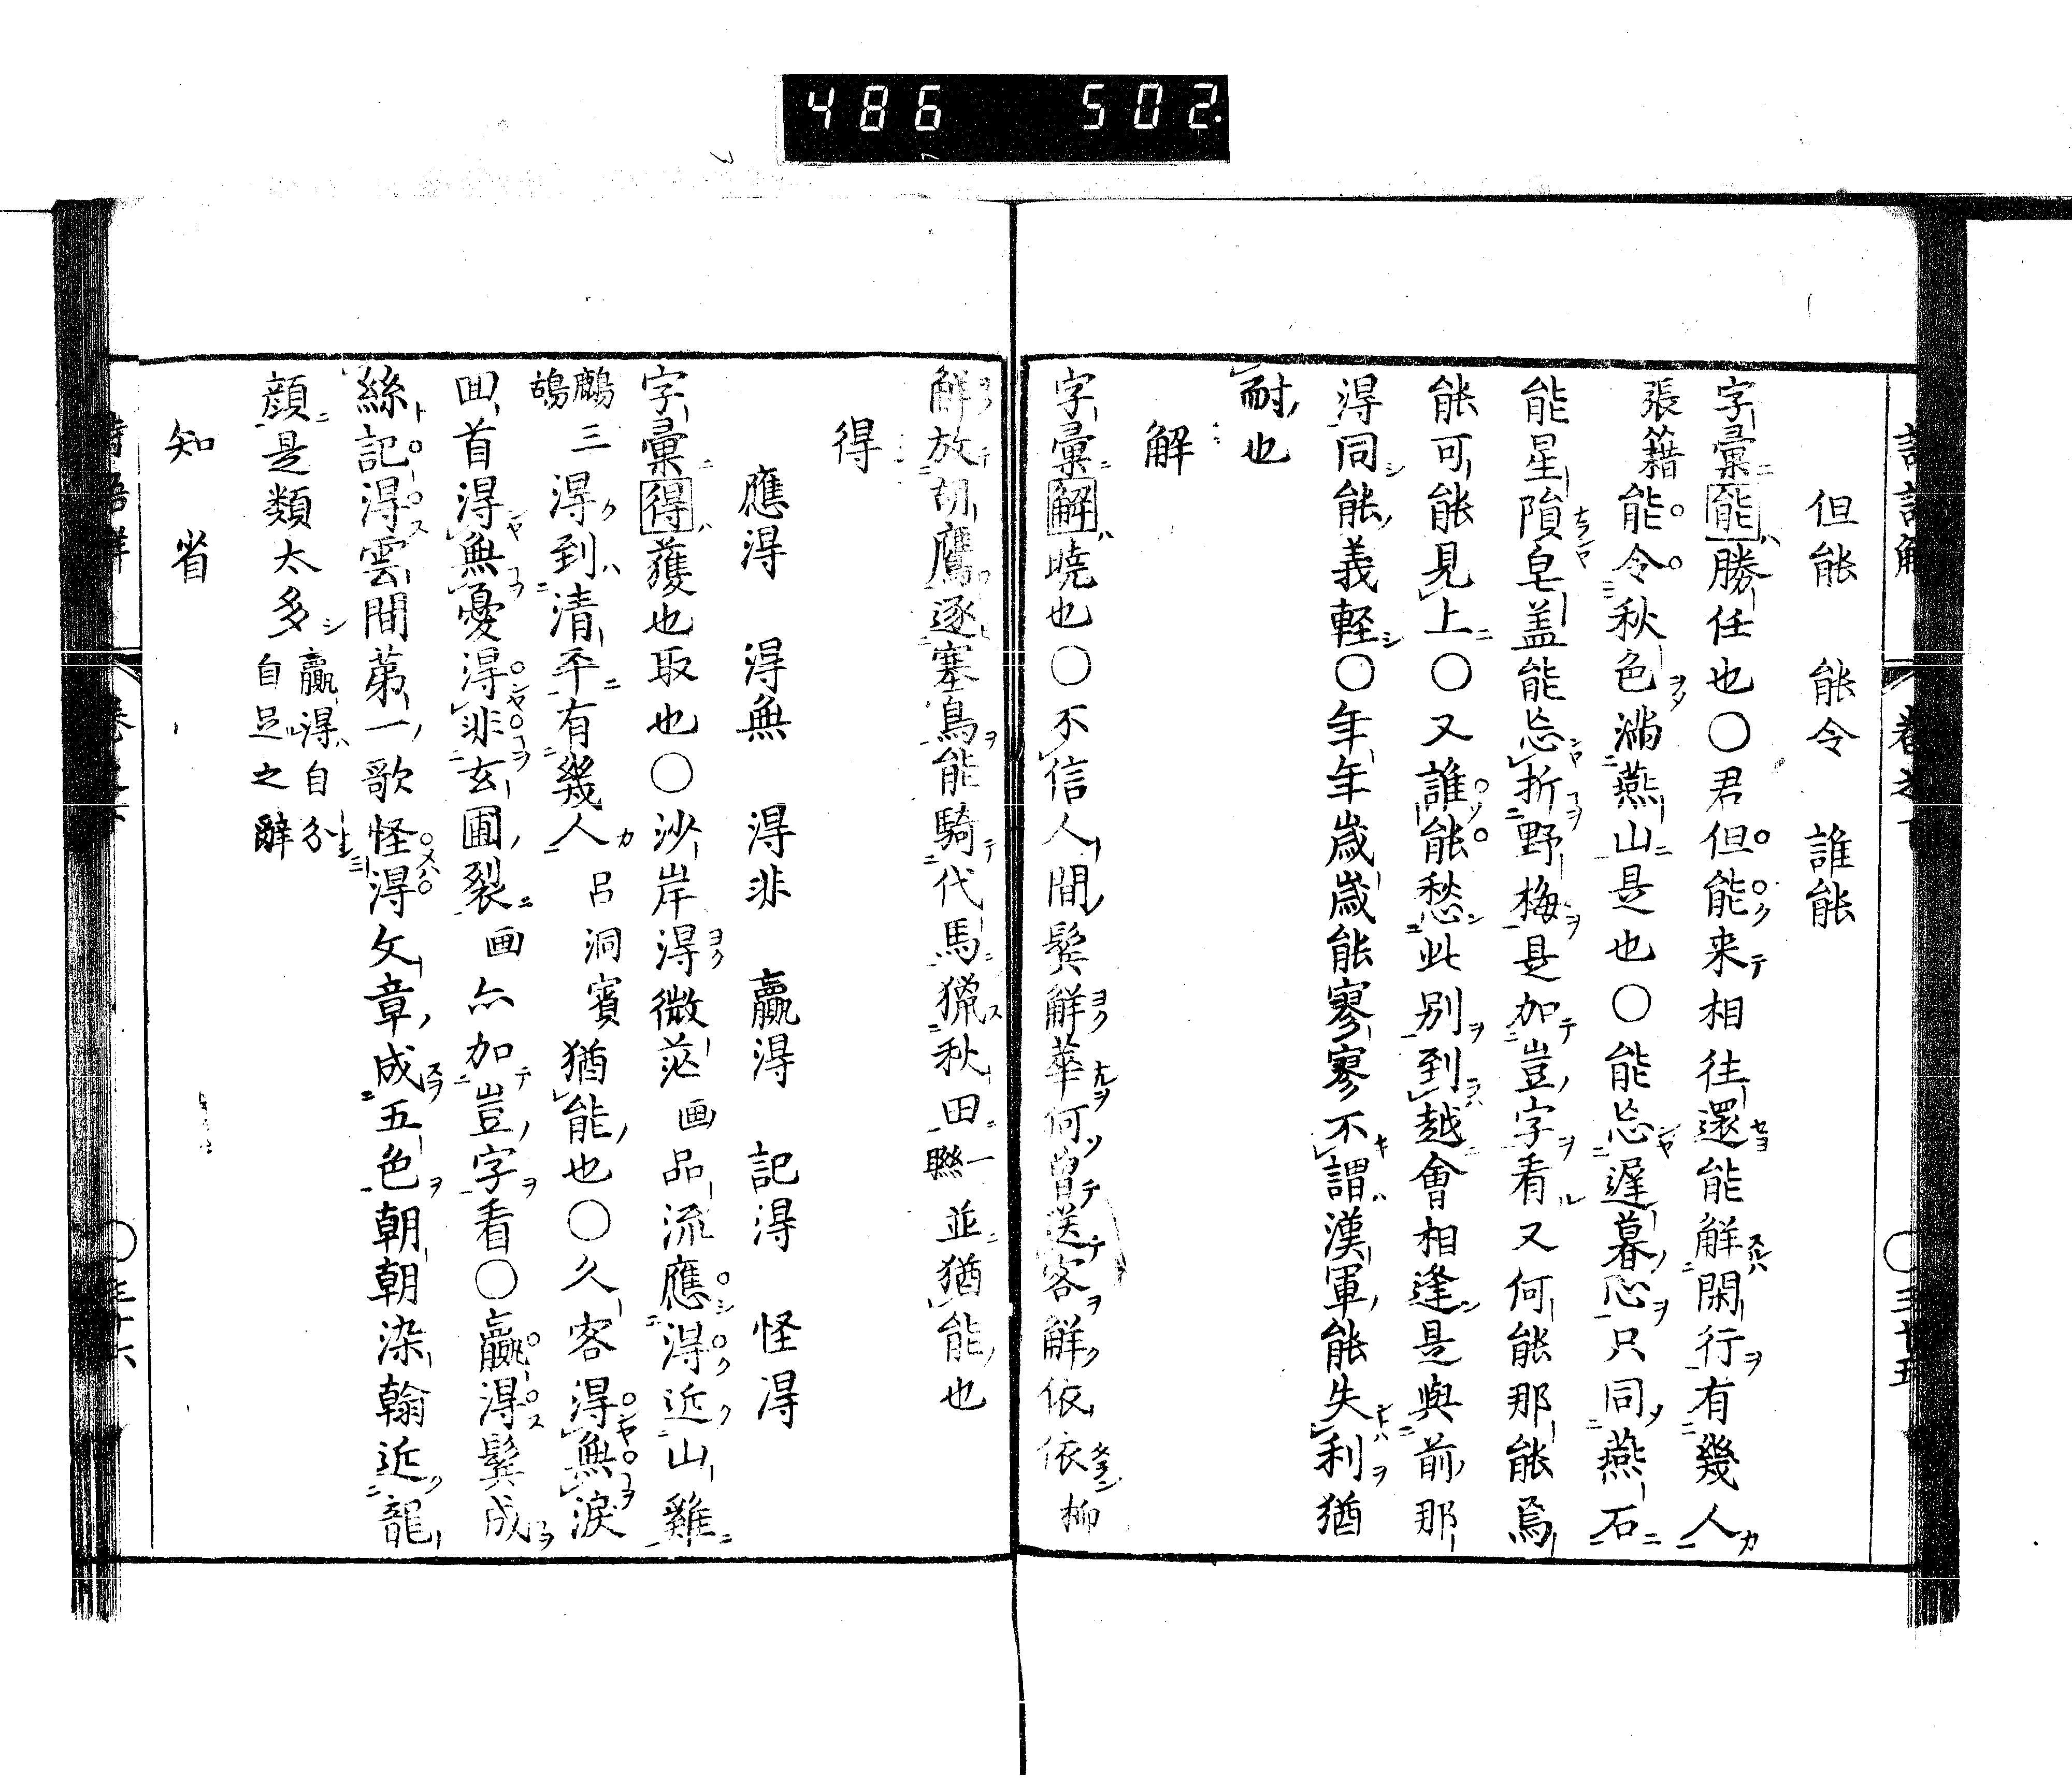 486 502.
但能 能令 誰能
字彙能勝任也〇君但能来相往還能解閑行有幾人
張籍能令秋色満燕山是也〇能忘遅暮心只同燕石
能星隕皂盖能忘折野梅是加豈字看又何能那能焉
能可能見上〇又誰能愁此別到越會相逢是與前那
得同能義軽〇年年歳歳能寥寥不謂漢軍能失利猶
耐也
解
字彙解暁也〇不信人間鬂解華何曽送客解依依柳
解放胡鷹逐塞鳥能騎代馬獵秋田聯並猶能也
得
應得 得無 得非 贏得 記得 怪得
字彙得獲也取也〇沙岸得微茫画品流應得近山雞
鷓鴣三得到清平有幾人呂洞賓猶能也〇久客得無淚
囬首得無憂得非玄圃裂画亦加豈字看〇贏得鬂成
絲記得雲間第一歌怪得文章成五色朝朝染翰近龍
顔是類太多贏得自分自足之辭
知省